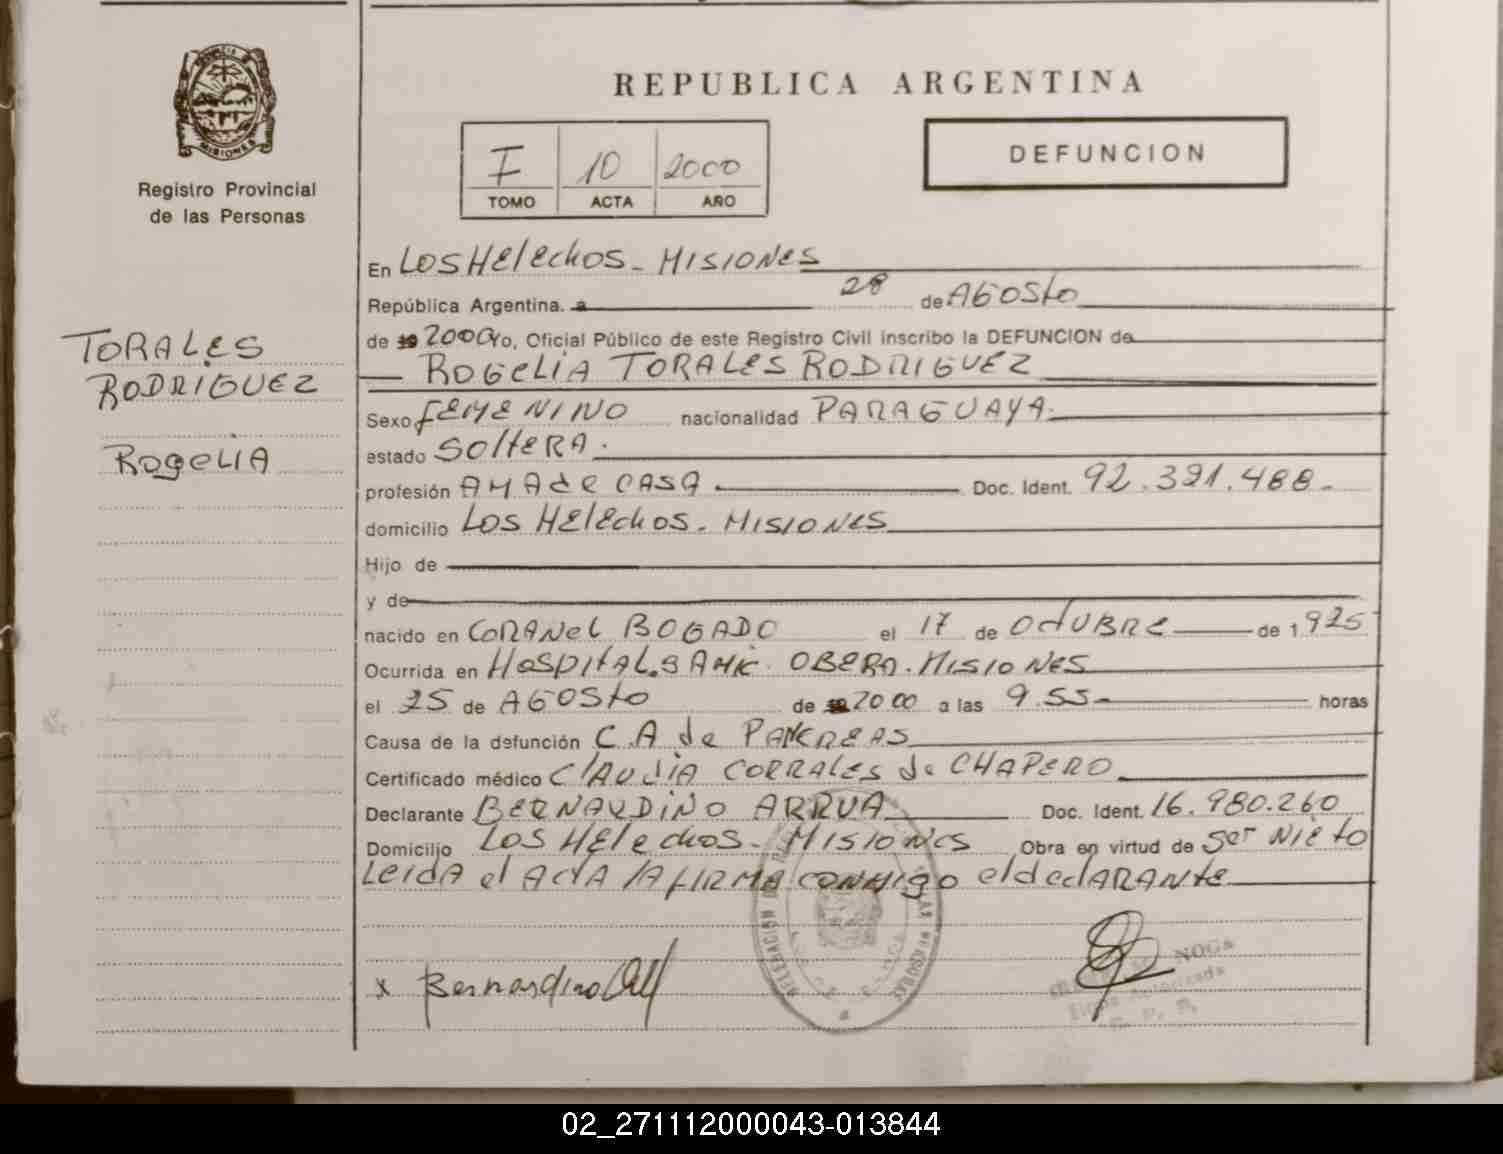 REPUBLICA ARGENTINA
MISIONES
Registro Provincial
de las Personas
I 10 2000
TOMO ACTA AÑO
DEFUNCION
TORALES
RODRIGUEZ
ROGELIA
En LOS HElEchOS - MISIONES
República Argentina. a 28 de AGOSto
de 19 2000 Yo, Oficial Público de este Registro Civil inscribo la DEFUNCION de
ROGELIA TORALES RODRIGUEZ
Sexo FEMENINO nacionalidad PARAGUAYA.
estado SOltERA.
profesión AMA de CASA. Doc. Ident. 92.321.488.
domicilio LOS HElEchOS. MISIONES
Hijo de
y de
nacido en CORANEL BOGADO el 17 de OctUBRE de 1925
Ocurrida en HOSPITAL.SAMIC. OBERA. MISIONES
el 25 de AGOSto de 19 2000 a las 9.55 horas
Causa de la defunción C.A de PANCREAS
Certificado médico ClAUdIA CORRALES de CHAPERO
Declarante BERNARDINO ARRUA Doc. Ident. 16.980.260
Domicilio LOS HElEchOS - MISIONES Obra en virtud de Ser NIEtO
LEIDA el ACtA lA FIRMA CONMIgO el declARANtE
x Bernardino
NOGA
Firma Autorizada
R. P. P.
02_271112000043-013844